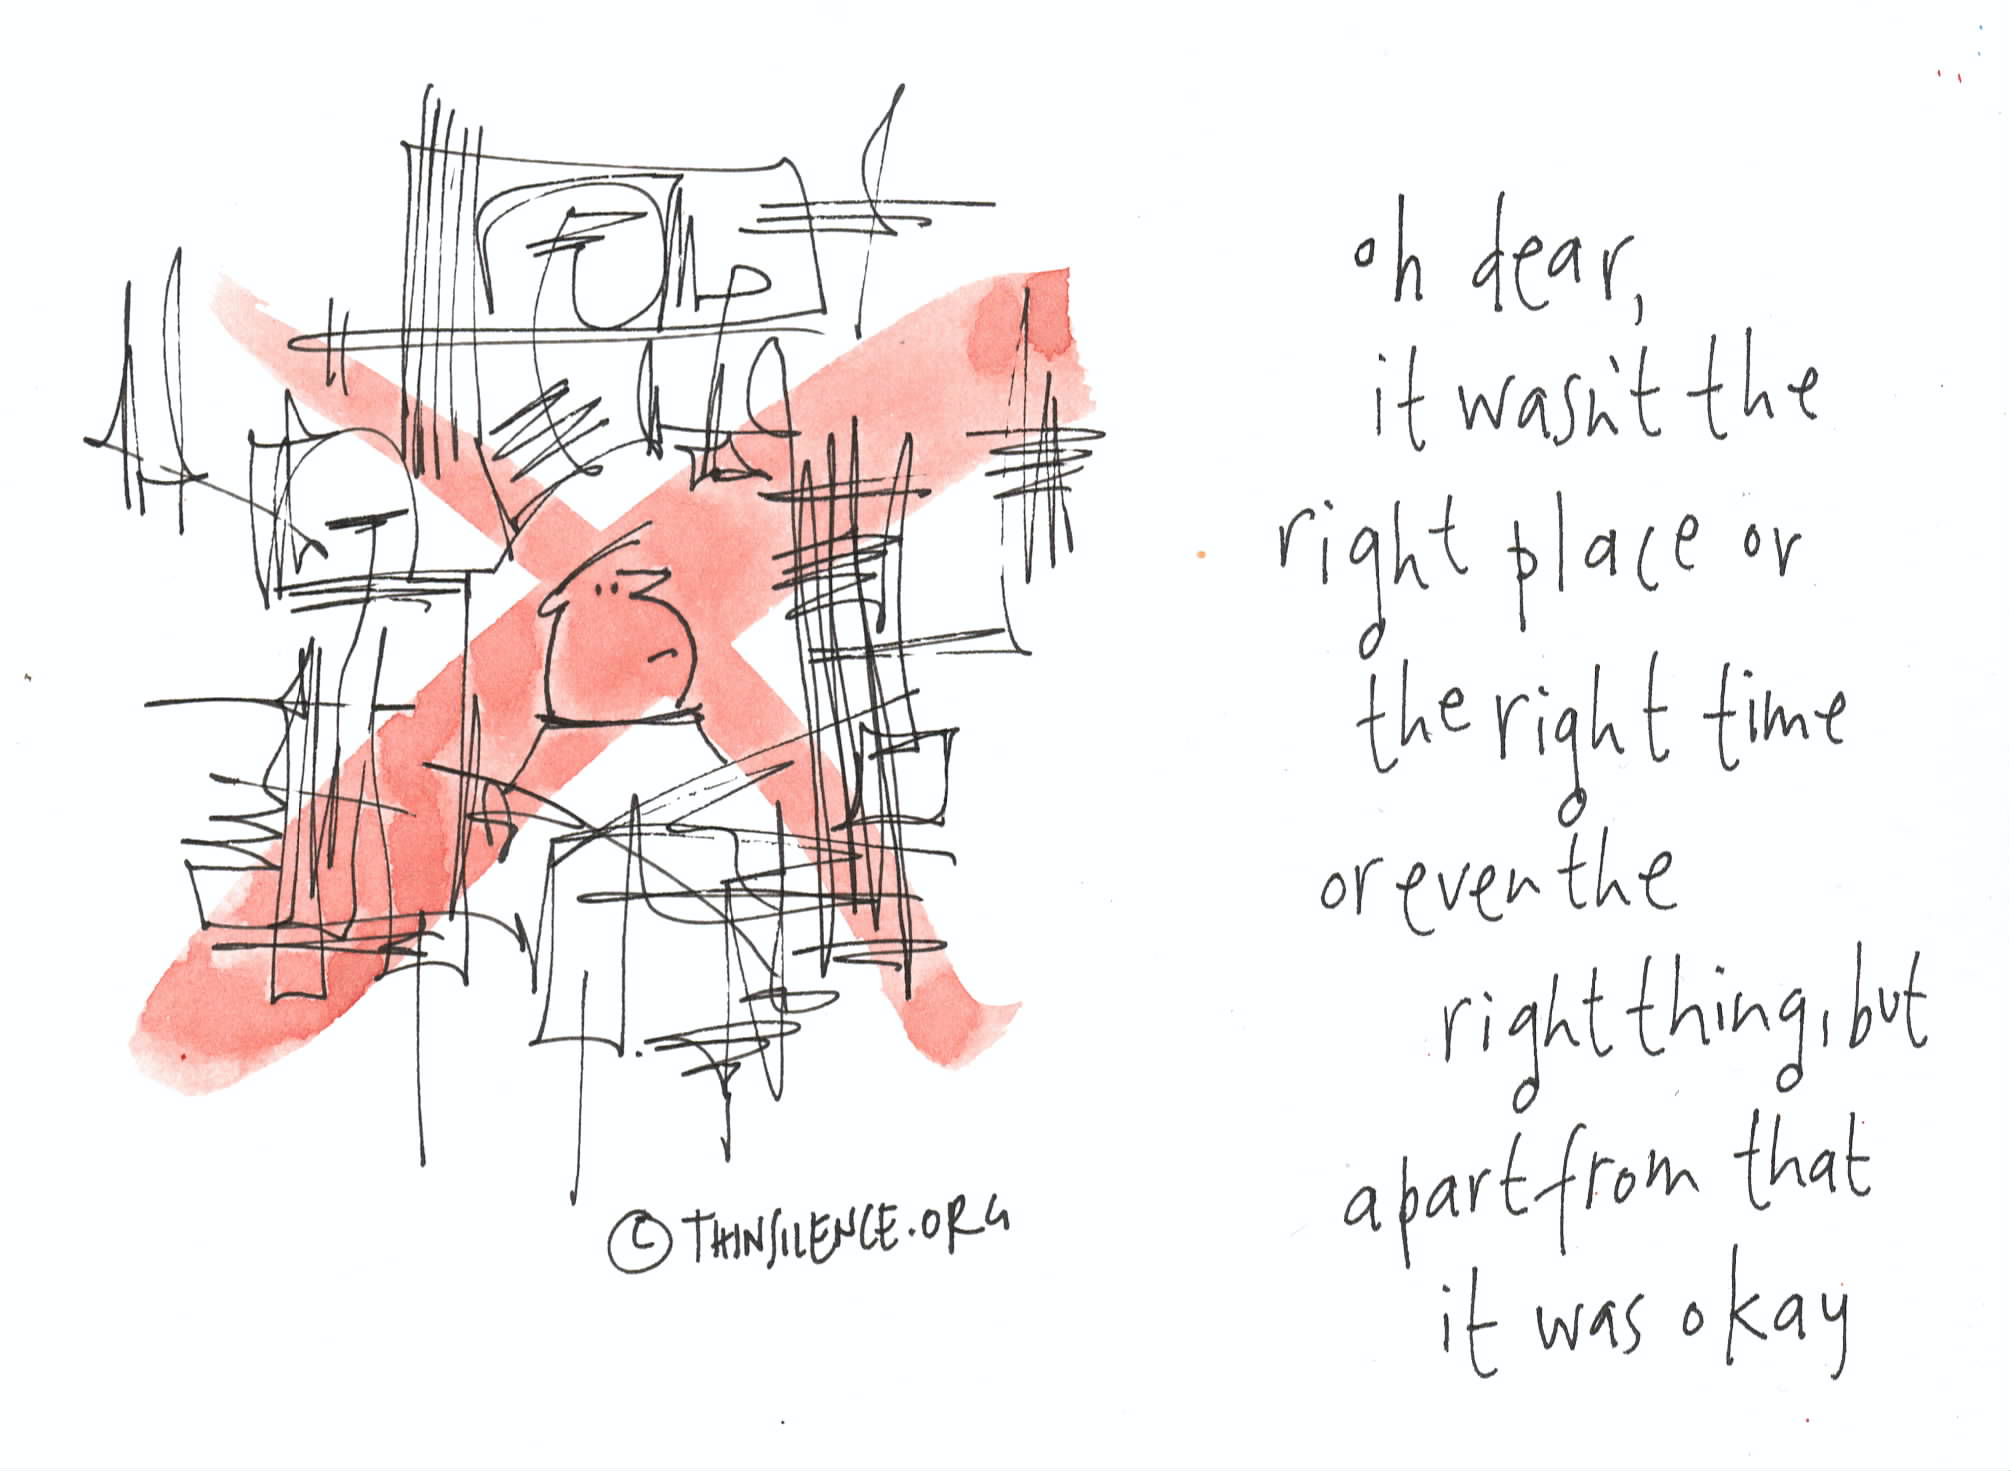 oh dear,
it wasn't the
right place or
the right time
or even the
right thing, but
apart from that
it was okay
© THINSILENCE.ORG